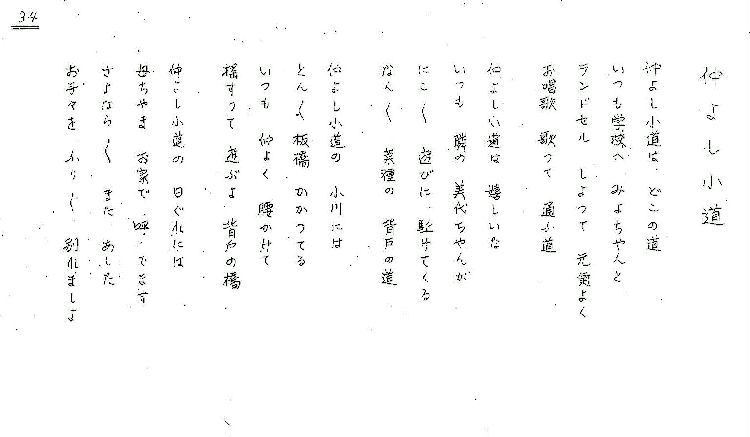 34
仲よし小道
仲よし小道は、どこの道
いつも学校へ みよちゃんと
ランドセル しよつて 元気よく
お唱歌 歌つて 通ふ道
仲よし小道は 嬉しいな
いつも 隣の 美代ちゃんが
にこ〱 遊びに 駈けてくる
なん〱 菜種の 背戸の道
仲よし小道の 小川には
とん〱 板橋 かかつてる
いつも 仲よく 腰かけて
揺すつて 遊ぶよ 背戸の橋
仲よし小道の 日ぐれには
母ちやま お家で 呼んでます
さよなら〱 また あした
お手々を ふり〱 別れましよ